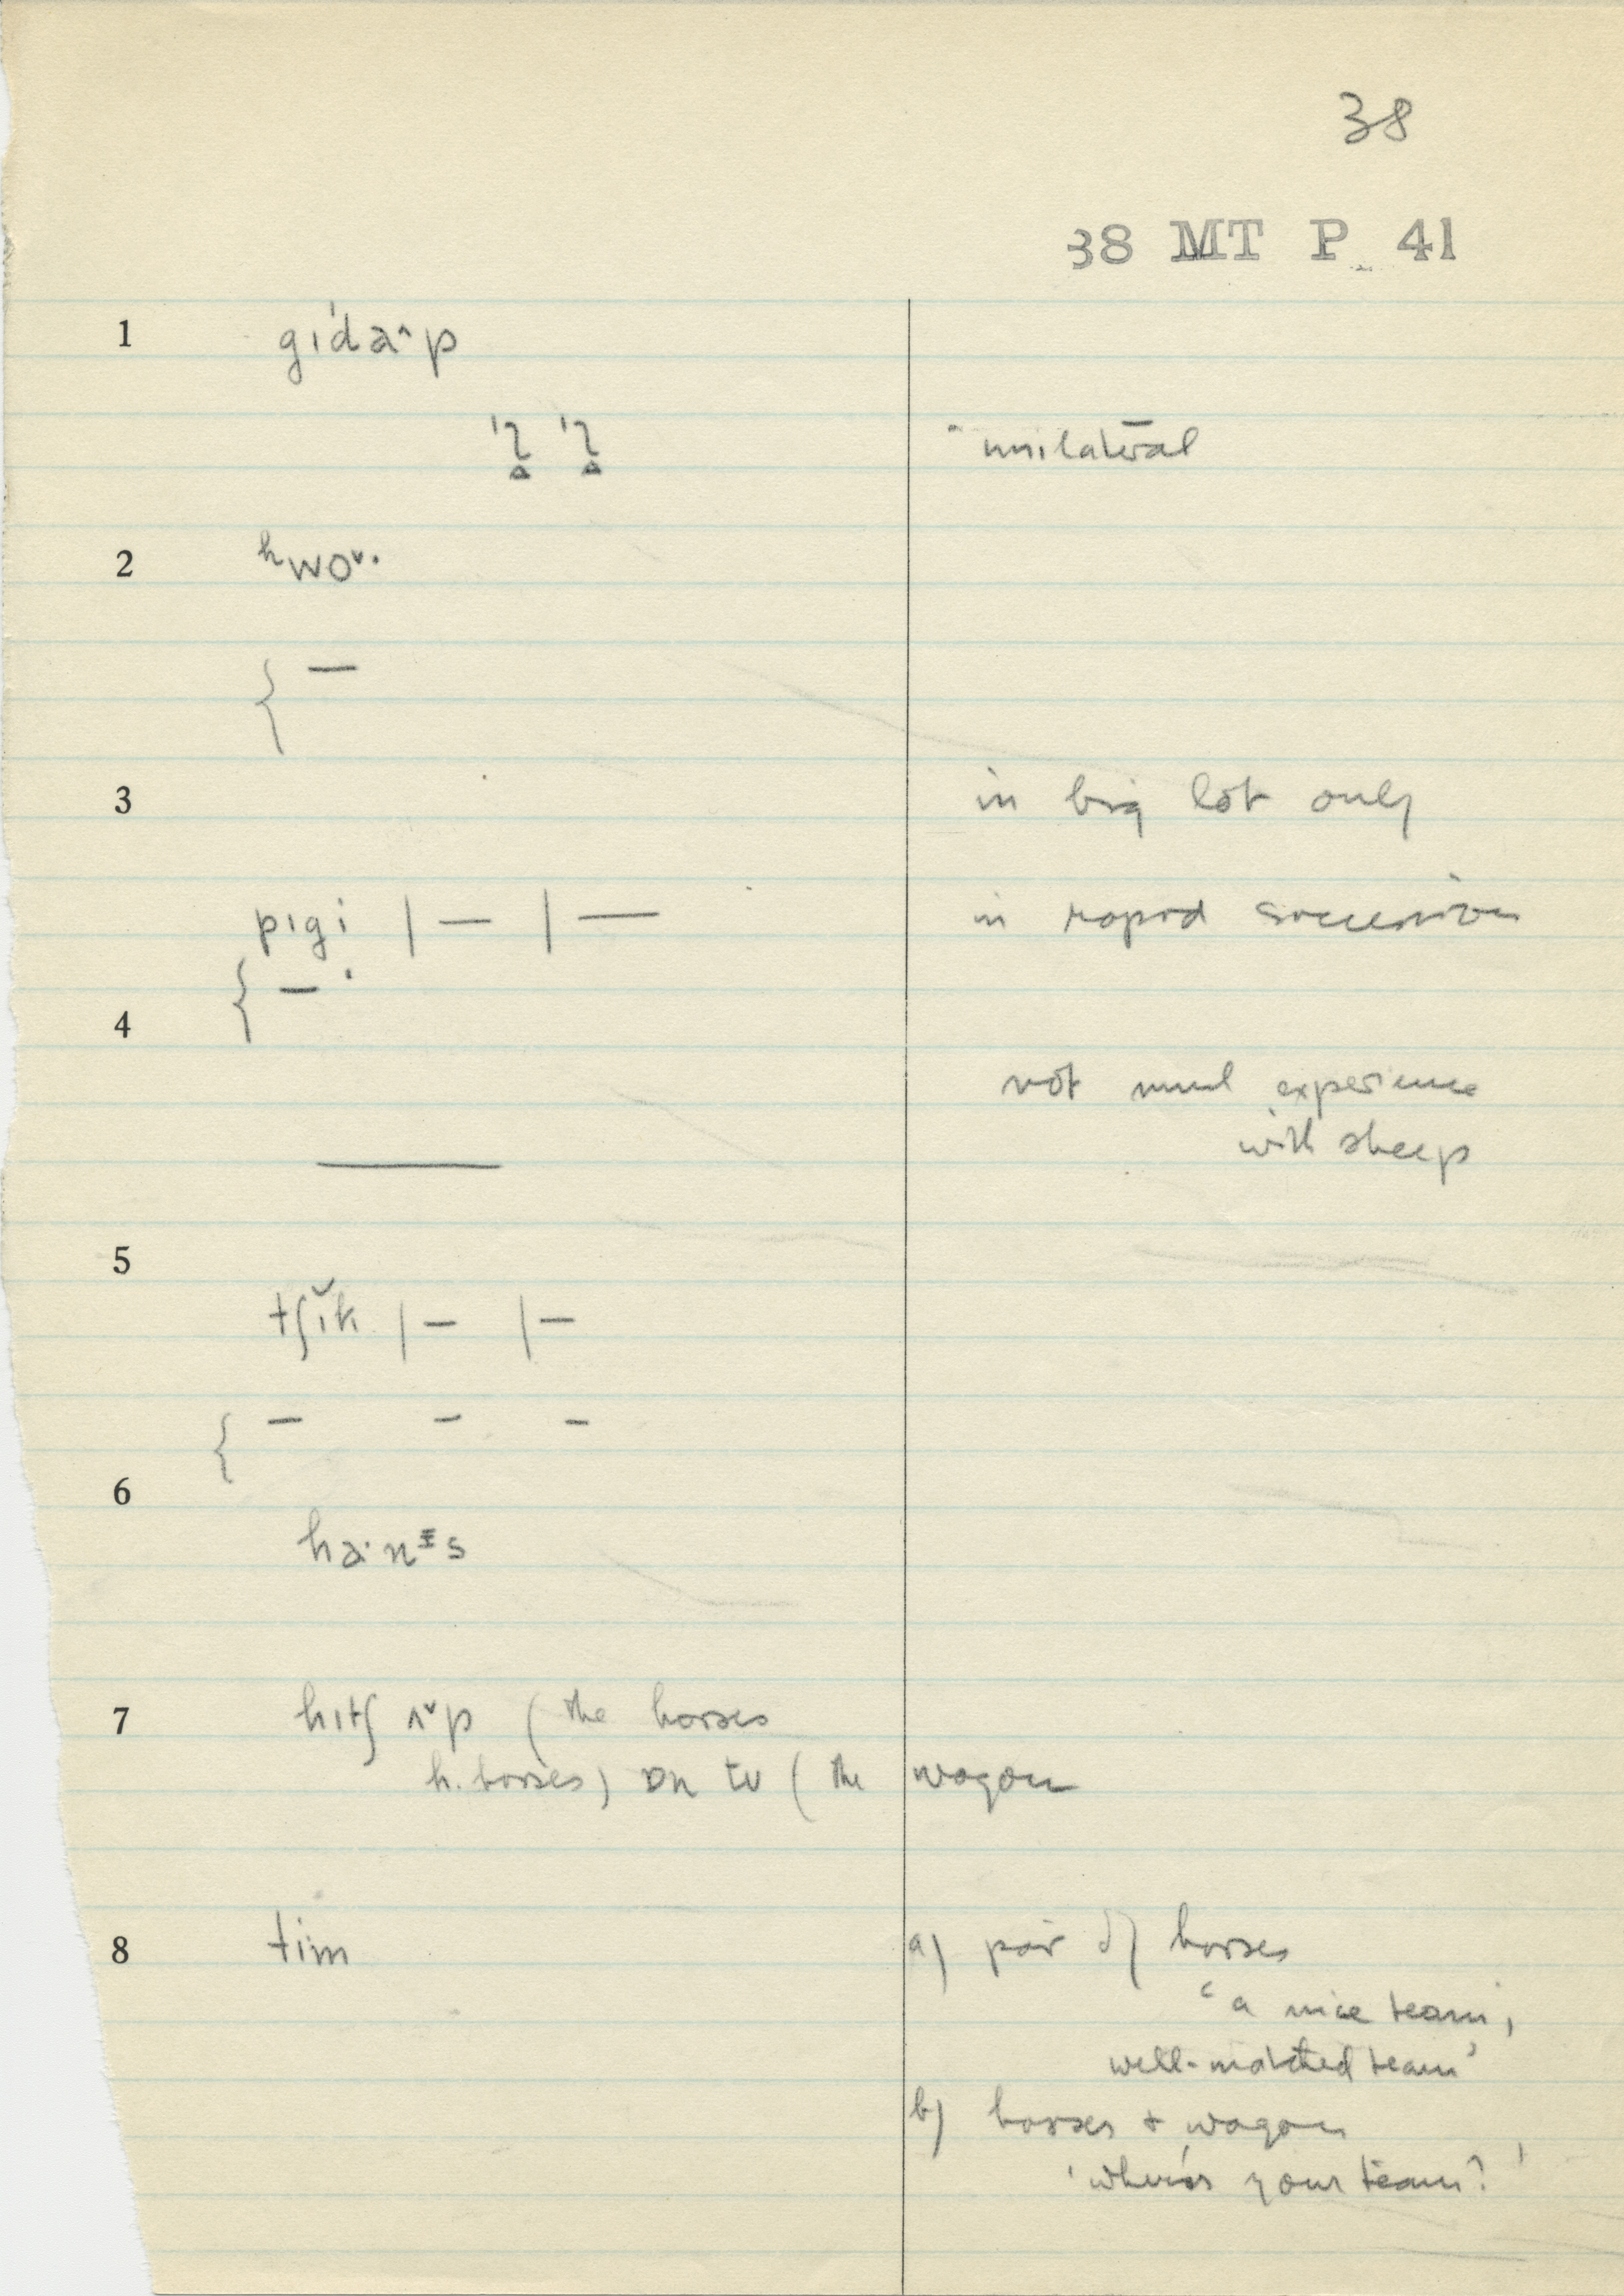 38
38 MT P 41
1 gɪ'daˆp
unilateral
2 ʰwoˇ·
{ —
3 in big lot only
pɪgi | — | — in rapid succession
{ — ·
4
not much experience
with sheep
5
tʃɪˇk | — | —
{ — - -
6
ha·nᵻs
7 hɪtʃ ʌˇp ( the horses
h. horses) ɒn tʊ ( the wagon
8 tim a) pair of horses
‘a nice team,
well-matched team’
b) horses + wagon
‘where's your team?’